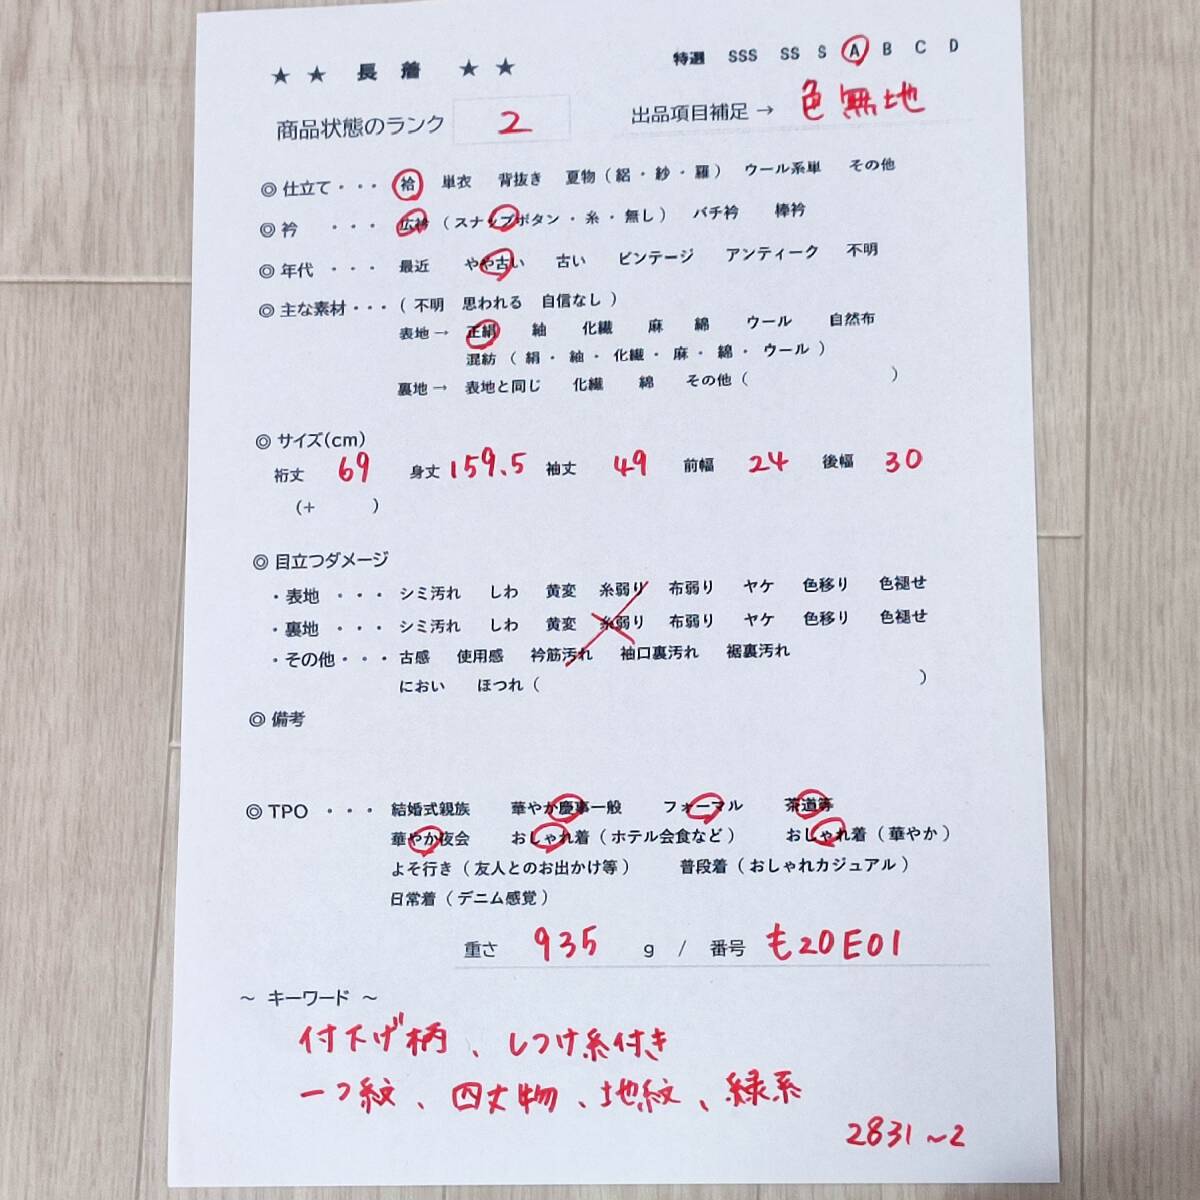 ★ ★ 長 着 ★ ★
特選 SSS SS S A B C D
商品状態のランク 2 出品項目補足 → 色無地
◎ 仕立て・・・ 袷 単衣 背抜き 夏物（絽・紗・羅） ウール系単 その他
◎ 衿 ・・・ 広衿（スナップボタン・糸・無し） バチ衿 棒衿
◎ 年代 ・・・ 最近 やや古い 古い ビンテージ アンティーク 不明
◎ 主な素材・・・（不明 思われる 自信なし）
表地→ 正絹 紬 化繊 麻 綿 ウール 自然布
混紡（絹・紬・化繊・麻・綿・ウール）
裏地→ 表地と同じ 化繊 綿 その他（ ）
◎ サイズ(cm)
裄丈 69 身丈 159.5 袖丈 49 前幅 24 後幅 30
(+ )
◎ 目立つダメージ
・表地 ・・・ シミ汚れ しわ 黄変 糸弱り 布弱り ヤケ 色移り 色褪せ
・裏地 ・・・ シミ汚れ しわ 黄変 糸弱り 布弱り ヤケ 色移り 色褪せ
・その他・・・ 古感 使用感 衿筋汚れ 袖口裏汚れ 裾裏汚れ
におい ほつれ（ ）
◎ 備考
◎ TPO ・・・ 結婚式親族 華やか慶事一般 フォーマル 茶道等
華やか夜会 おしゃれ着（ホテル会食など） おしゃれ着（華やか）
よそ行き（友人とのお出かけ等） 普段着（おしゃれカジュアル）
日常着（デニム感覚）
重さ 935 g / 番号 も20E01
～ キーワード ～
付下げ柄、しつけ糸付き
一つ紋、四丈物、地紋、緑系
2831～2